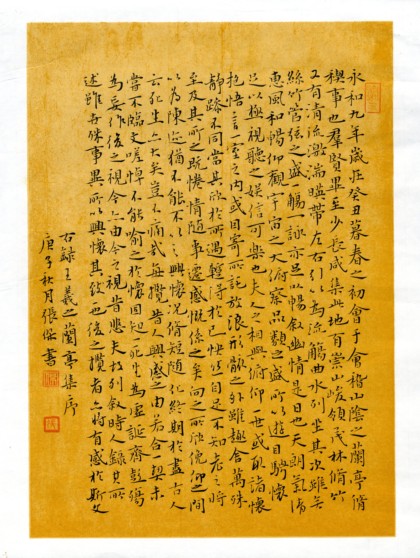 永和九年歲在癸丑暮春之初會于會稽山陰之蘭亭脩
稧事也羣賢畢至少長咸集此地有崇山峻領茂林脩竹
又有清流激湍暎帶左右引以為流觴曲水列坐其次雖無
絲竹管弦之盛一觴一詠亦足以暢叙幽情是日也天朗氣清
惠風和暢仰觀宇宙之大俯察品類之盛所以遊目騁懷
足以極視聽之娛信可樂也夫人之相與俯仰一世或取諸懷
抱悟言一室之內或因寄所託放浪形骸之外雖趣舍萬殊
靜躁不同當其欣於所遇蹔得於己快然自足不知老之將
至及其所之既惓情隨事遷感慨係之矣向之所欣俛仰之間
以為陳迹猶不能不以之興懷況脩短隨化終期於盡古人
云死生亦大矣豈不痛哉每攬昔人興感之由若合一契未
嘗不臨文嗟悼不能喻之於懷固知一死生為虛誕齊彭殤
為妄作後之視今亦由今之視昔悲夫故列叙時人錄其所
述雖世殊事異所以興懷其致一也後之攬者亦將有感於斯文
右録王羲之蘭亭集序
庚子秋月張書